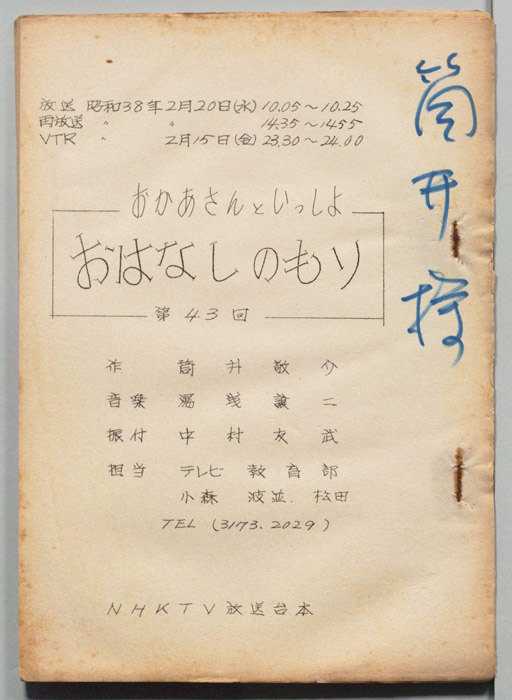 放送 昭和38年2月20日(水) 10.05〜10.25
再放送 〃 〃 14.35〜14.55
VTR 〃 2月15日(金) 23.30〜24.00
おかあさんといっしよ
おはなしのもり
第43回
作 筒井敬介
音楽 湯浅譲二
振付 中村友武
担当 テレビ教育部
小森 波並. 松田
TEL (3173.2029)
NHKTV放送台本
筒井様